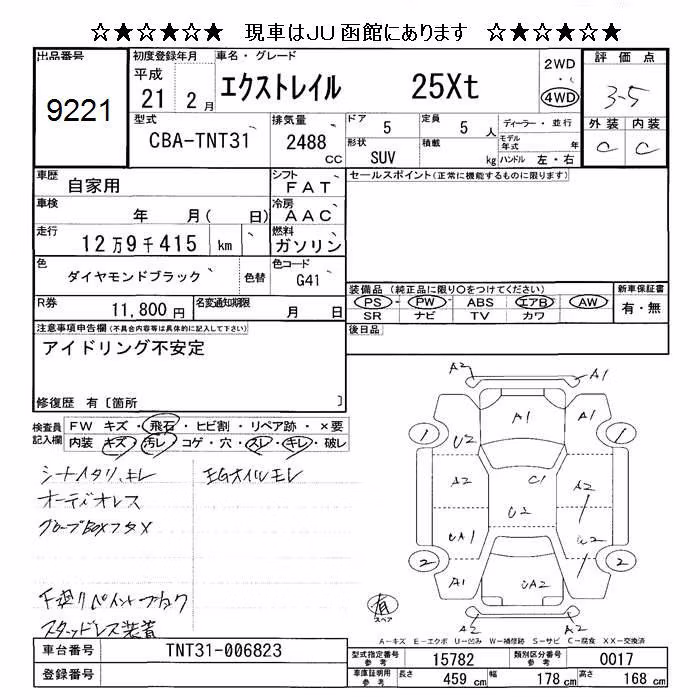 ☆★☆★☆★ 現車はJU函館にあります ☆★☆★☆★
出品番号
9221
初度登録年月
平成
21 2月
車名・グレード
エクストレイル 25Xt
2WD
・
4WD
評価点
3-5
外装 内装
C C
型式
CBA-TNT31
排気量
2488
CC
ドア 5
定員 5 人
ディーラー・並行
モデル年式 年
形状
SUV
積載 kg
ハンドル 左・右
車歴
自家用
シフト
FAT
セールスポイント(正常に機能するものに限ります)
車検
年 月( 日)
冷房
AAC
走行
12万9千415 km
燃料
ガソリン
色
ダイヤモンドブラック
色替
色コード
G41
装備品(純正品に限り○をつけてください)
新車保証書
PS・PW・ABS エアB・AW
SR ナビ TV カワ
有・無
R券
11,800円
名変通知期限
月 日
後日品
注意事項申告欄(不具合内容等は具体的に記入して下さい)
アイドリング不安定
修復歴 有〔箇所 〕
検査員
記入欄
FW キズ・飛石・ヒビ割・リペア跡・×要
内装 キズ・汚レ・コゲ・穴・スレ・キレ・破レ
シートイタリ、キレ
EGオイルモレ
オーディオレス
グローブBOXフタX
下廻りペイントブラック
スタッドレス装着
A2 A1
A1 A1
1 1
U2
A2 C1 A2
U2
UA1 U2
2 2
A1 UA2
A2 A2
有
スペア
A－キズ E－エクボ U－凹み W－補修跡 S－サビ C－腐食 XX－交換済
車台番号
TNT31-006823
登録番号
型式指定番号
参考
15782
類別区分番号
参考
0017
車庫証明用
参考
長さ 459 cm
幅 178 cm
高さ 168 cm